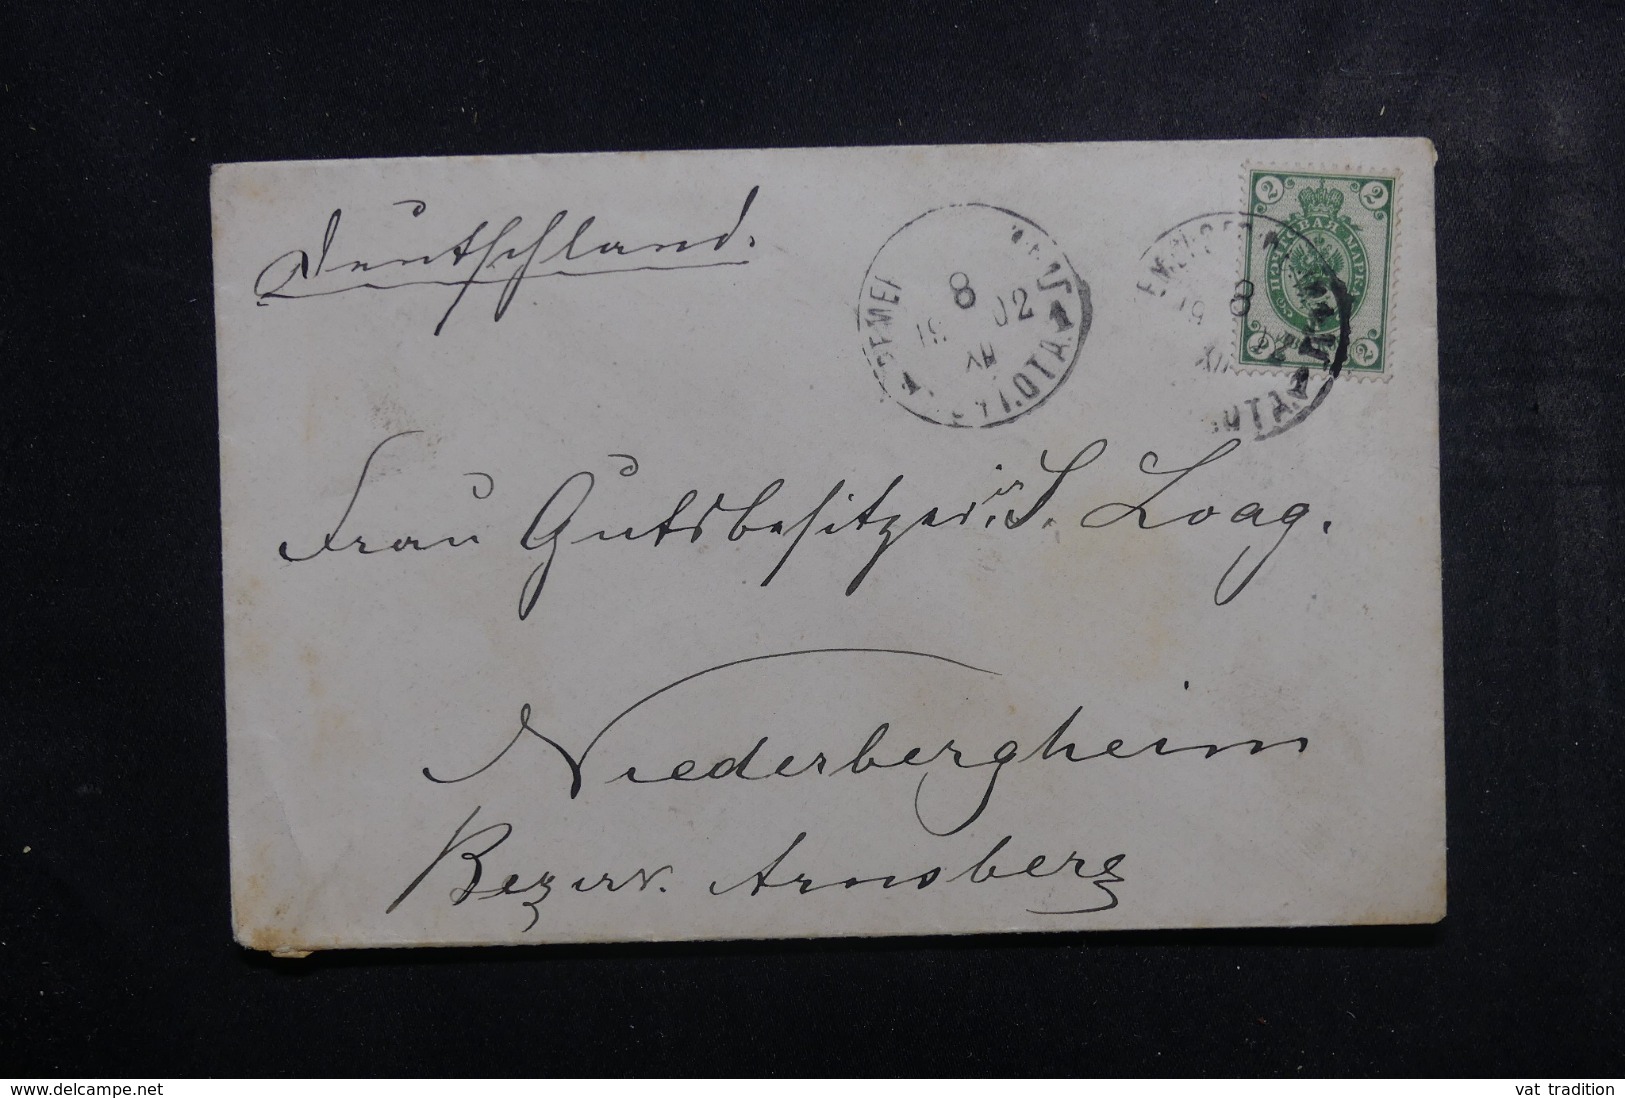 Deutschland.
8
02
XII
2 2
МАРКА
8
XII
2
Frau Gutsbesitzerin S. Loag.
Niederbergheim
Bezirk. Arnsberg
www.delcampe.net
vat_tradition